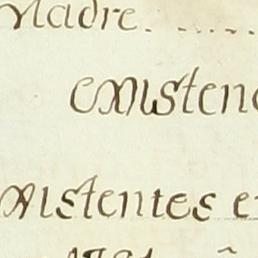 Madre. . . . . .
existenc
xistentes e